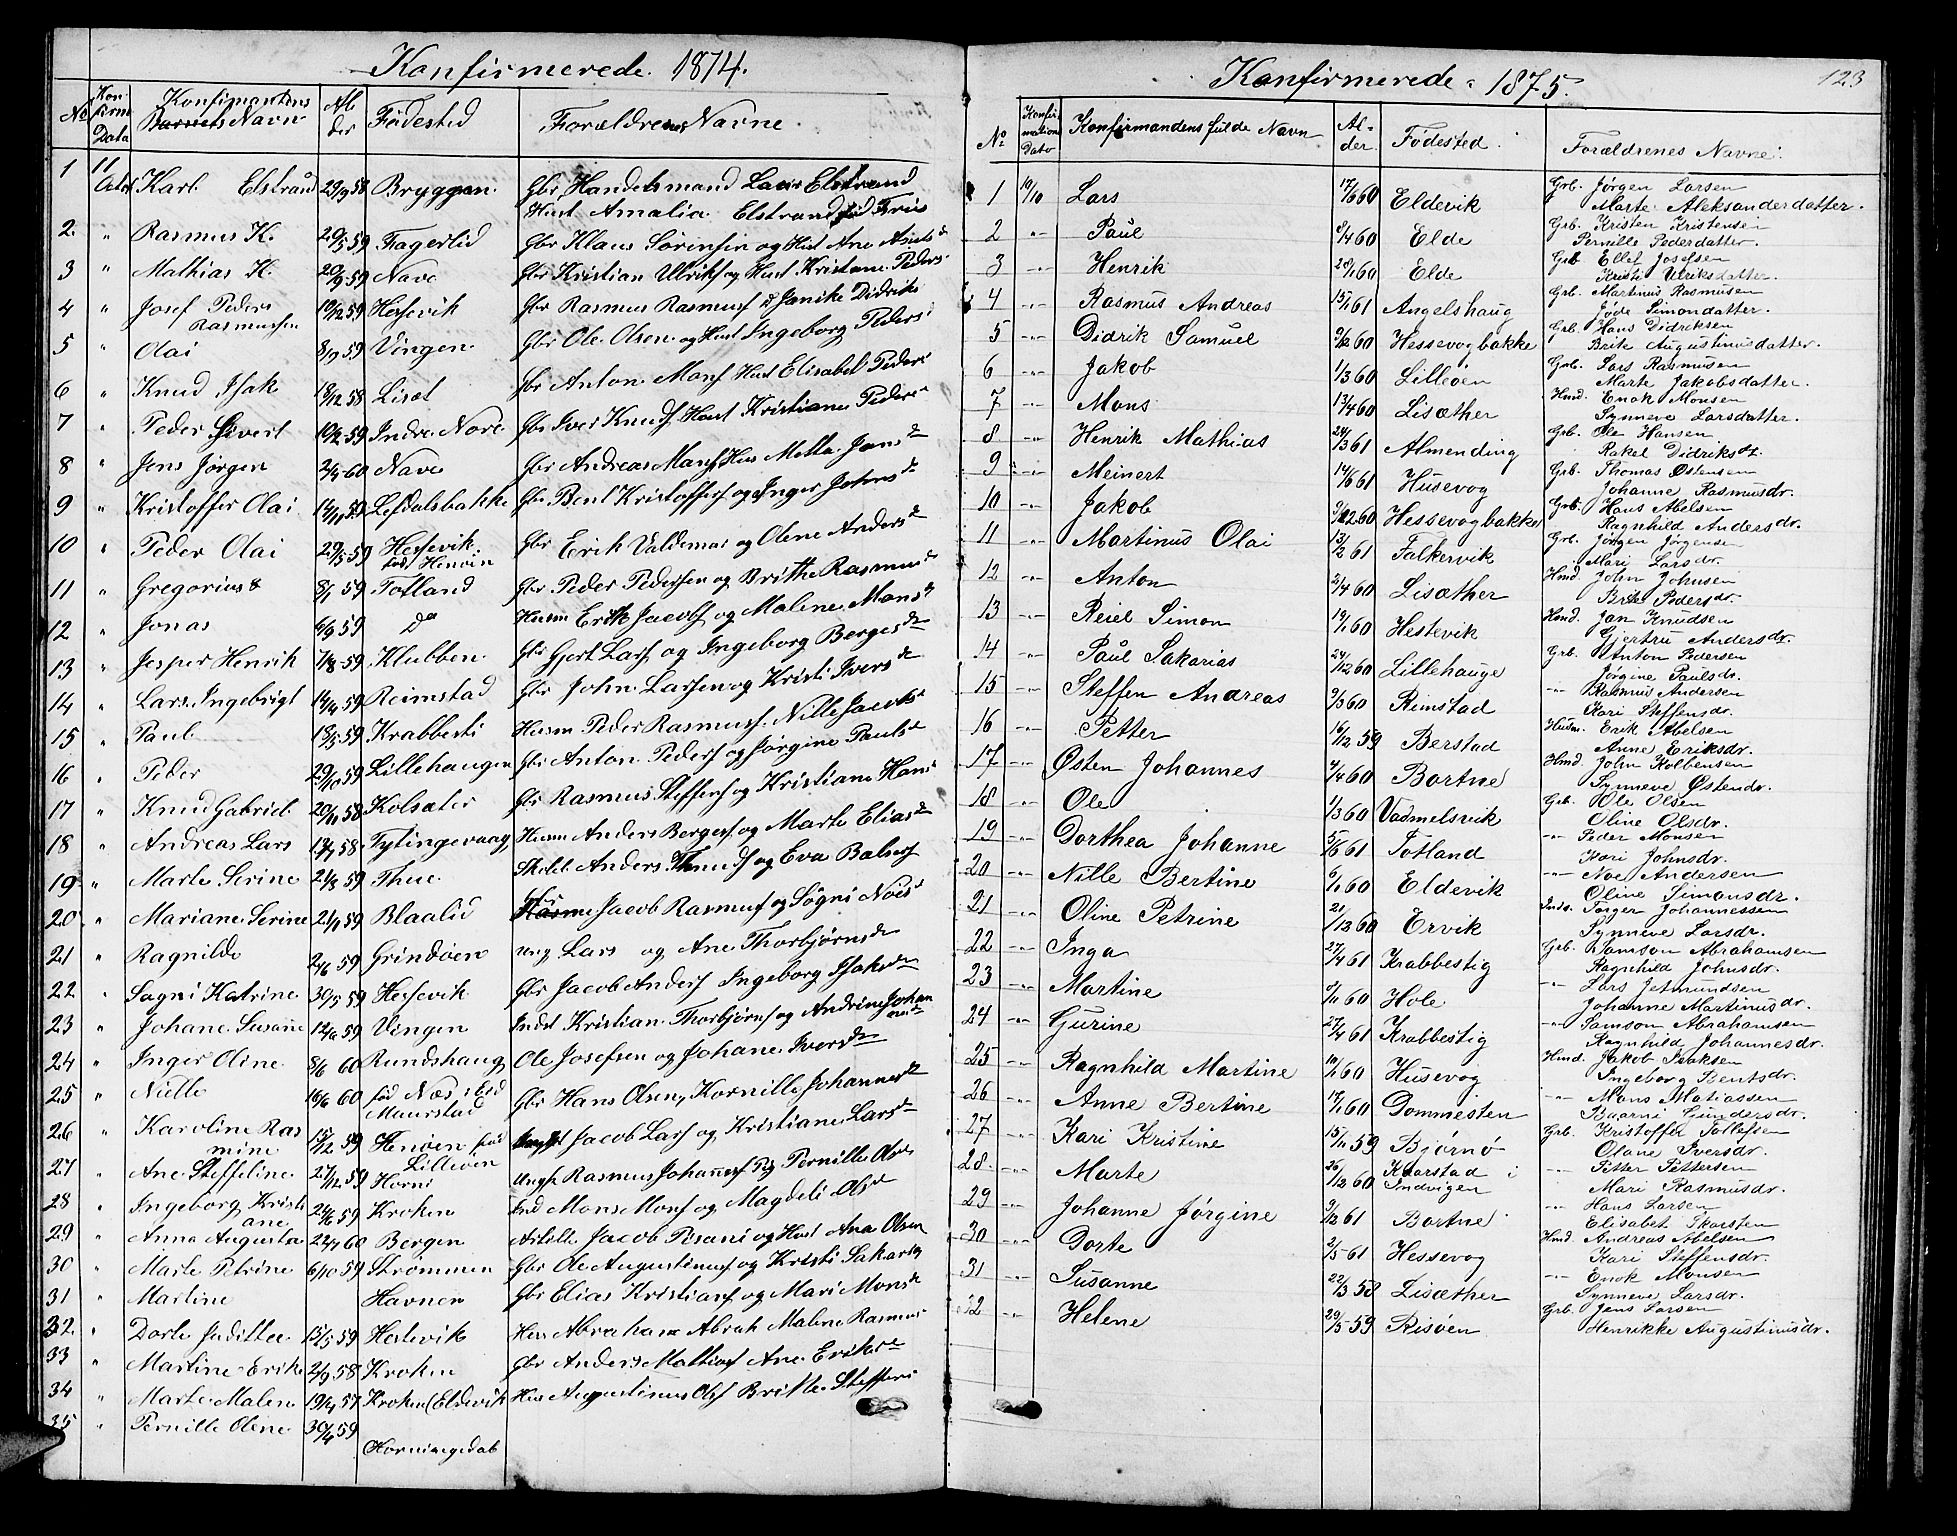 Konfirmerede. 1874.
No Konfirm Data Konfimantens Barnets Navn Alder Fødested Forældrenes Navne.
1 11 Octob Karl Elstrand 29/9 58 Bryggen. Gbr Handelsmand Lars Elstrand
Hust Amalia Elstrand fød Friis
2. " Rasmus K. 20/5 59 Fagerlid Gbr Klaus Sørensen og Hust Ane
3 " Mathias K. 20/9 59 Nave Gbr Kristian Ulriks og Hust Kristane Peders
4 " Josef Peder Rasmussen 10/12 59 Hessevik Gbr Rasmus Rasmuss Janike Didriks
5 " Olai 8/9 59 Vingen Gbr Ole Olsen og Hust Ingeborg Peders
6 " Knud Isak 19/12 58 Lisæt Gbr Anton Mons Hust Elisabet Peders
7 " Peder Sivert 10/2 59 Indre Nore Gbr Iver Knuds Hust Kristiane Peders
8 " Jens Jørgen 2/4 60 Nave Gbr Andreas Mons Hus Metta Jans
9 " Kristoffer Olai 14/11 59 Lefdalsbakke Gbr Bent Kristoffers og Inger Johns
10 " Peder Olai 29/5 59 Hessevik fød Henøen Gbr Erik Valdemar og Olene Anders
11 " Gregorius 8/1 59 Totland Gbr Peder Pedersen og Brithe Rasmus
12 " Jonas 6/9 59 Do Husm Erik Jacobs og Malene Mons
13 " Jesper Henrik 7/8 59 Klubben Gbr Gjert Lars og Ingeborg Berges
14 " Lars Ingebrigt 14/4 59 Reimstad Gbr John Larsen og Kristi Ivers
15 " Paul 18/5 59 Krabbesti Husm Peder Rasmus. Nille Jacobs
16 " Peder 29/10 59 Lillehaugen Gbr Anton Peders og Jørgine Pauls
17 " Knud Gabriel 20/11 58 Kolsæter Gbr Rasmus Steffens og Kristiane Hans
18 " Andreas Lars 13/7 58 Fytingevaag Husm Anders Berges og Marte Elias
19 " Marte Serine 21/3 59 Thue Anders Knuds og Eva Balsers
20 " Mariane Serine 21/1 59 Blaalid Jacob Rasmus og Søgni Noes
21 " Ragnilde 24/6 59 Grindøen ung Lars og Ane Thorbjørns
22 " Sagni Katrine 30/5 59 Hessevik Gbr Jacob Anders Ingeborg Isaks
23 " Johane Susanne 12/10 59 Vingen Indst Kristian Thorbjørns og Andrine Johan
24 " Inger Oline 8/6 60 Rundshaug Ole Josefsen og Johane Ivers
25 " Nielle 16/6 60 fød Næsestad Maurstad Gbr Hans Olsen, Kornille Johannes
26 " Karoline Rasmine 15/12 59 Henøen fød Lilleøen Jacob Lars og Kristiane Lars
27 " Ane Steffeline 27/12 59 Horni Ungk Rasmus Johanness Pernille Ols
28 " Ingeborg Kristiane 24/6 59 Kroken Ind Mons Mons og Magdeli Ols
29 " Anna Augusta 22/7 60 Bergen Artille Jacob Pisani og Hust Ana Olsen
30 " Marte Petrine 6/10 59 Strømmen Gbr Ole Augustinus og Kristi Sakarias
31 " Martine Havnen Gbr Elias Kristians og Mari Mons
32. " Dorte Juditte 15/5 59 Hestevik Hus Abraham Abrah Malene Rasmus
33 " Martine Erike 2/9 58 Kroken Gbr Anders Mattias Ane Eriks
34 " Marte Malene 19/4 57 Kroken (Eldevik Hus Augustinus Ols Britte Steffens
35 " Pernille Oline 30/4 59
Horningedab
Konfirmerede 1875. 123
No Konfirmations Dato Konfirmandens fulde Navn Alder. Fødested. Forældrenes Navne.
1 10/10 Lars 17/6 60 Eldevik Grb. Jørgen Larsen
Marte Aleksanderdatter.
2 " Paul 8/4 60 Elde Grb. Kristen Kristensen
Pernille Pedersdatter.
3 " Henrik 20/1 60 Elde Grb. Ellef Josefsen
Kristi Ulriksdatter.
4 " Rasmus Andreas 15/1 61 Angelshaug Grb. Martinus Rasmusen
Jøde Simondatter.
5 " Didrik Samuel 9/12 60 Hessevogbakke Grb. Hans Didriksen
Brite Augustinusdatter.
6 " Jakob 1/3 60 Lilleøen Grb. Lars Rasmusen
Marte Jakobsdatter.
7 " Mons 13/4 60 Lisæther Hmd. Enok Monsen
Synneve Larsdatter.
8 " Henrik Mathias 24/3 61 Almending Grb. Ole Hansen
Rakel Didriksd.
9 " Meinert 14/6 61 Husevog Grb. Thomas Østensen
Johanne Rasmusdr.
10 " Jakob 9/12 60 Hessevogbakke Grb. Hans Abelsen
Ragnhild Andersdr.
11 " Martinus Olai 13/2 61 Falkervik Grb. Jørgen Jørgensen
Mari Larsdr.
12 " Anton 2/4 60 Lisæther Hmd. John Johnsen
Brite Pedersdr.
13 " Reiel Simon 19/1 60 Hestevik Hmd. Jan Knudsen
Gjertru Andersdr.
14 " Paul Sakarias 24/12 60 Lillehauge Grb. Anton Pedersen
Jørgine Paulsdr.
15 " Steffen Andreas 9/3 60 Rimstad " Rasmus Andersen
Kari Steffensdr.
16 " Petter 16/12 59 Berstad Husm. Erik Abelsen
Anne Eriksdr.
17 " Østen Johannes 4/4 60 Bortne Hmd. John Kolbensen
Synneve Østendr.
18 " Ole 1/3 60 Vadmelsvik Grb. Ole Olsen
Oline Olsdr.
19 " Dorthea Johanne 5/6 61 Totland " Peder Monsen
Kari Johnsdr.
20 " Nille Bertine 6/1 60 Eldevik " Noe Andersen
Oline Simonsdr.
21 " Oline Petrine 21/12 60 Ervik Inds. Torger Johannessen
Synneve Larsdr.
22 " Inga 27/4 61 Krabbestig Grb. Samson Abrahamsen
Ragnhild Johnsdr.
23 " Martine 9/11 60 Hole " Lars Jetmundsen
Johanne Martinusdr.
24 " Gurine 27/4 61 Krabbestig " Samson Abrahamsen
Ragnhild Johannesdr.
25 " Ragnhild Martine 10/1 60 Husevog Hmd. Jakob Isaksen
Ingeborg Bentsdr.
26 " Anne Bertine 17/1 60 Dommesten " Mons Matiassen
Baarni Gundersdr.
27 " Kari Kristine 15/11 59 Bjørnø Grb. Kristoffer Tollefsen
Olane Iversdr.
28. " Marte 26/12 60 Kaarstad i Indvigen " Petter Pettersen
Mari Rasmusdr.
29 " Johanne Jørgine 9/12 61 Bortne " Hans Larsen
Elisabet Skarsten
30 " Dorte 2/5 61 Hessevog Hmd Andreas Abelsen
Kari Steffensdr.
31 " Susanne 22/3 58 Lisæther " Enok Monsen
Synneve Larsdr.
32 " Helene 29/5 59 Risøen Grb. Jens Larsen
Henrikke Augustinusdr.